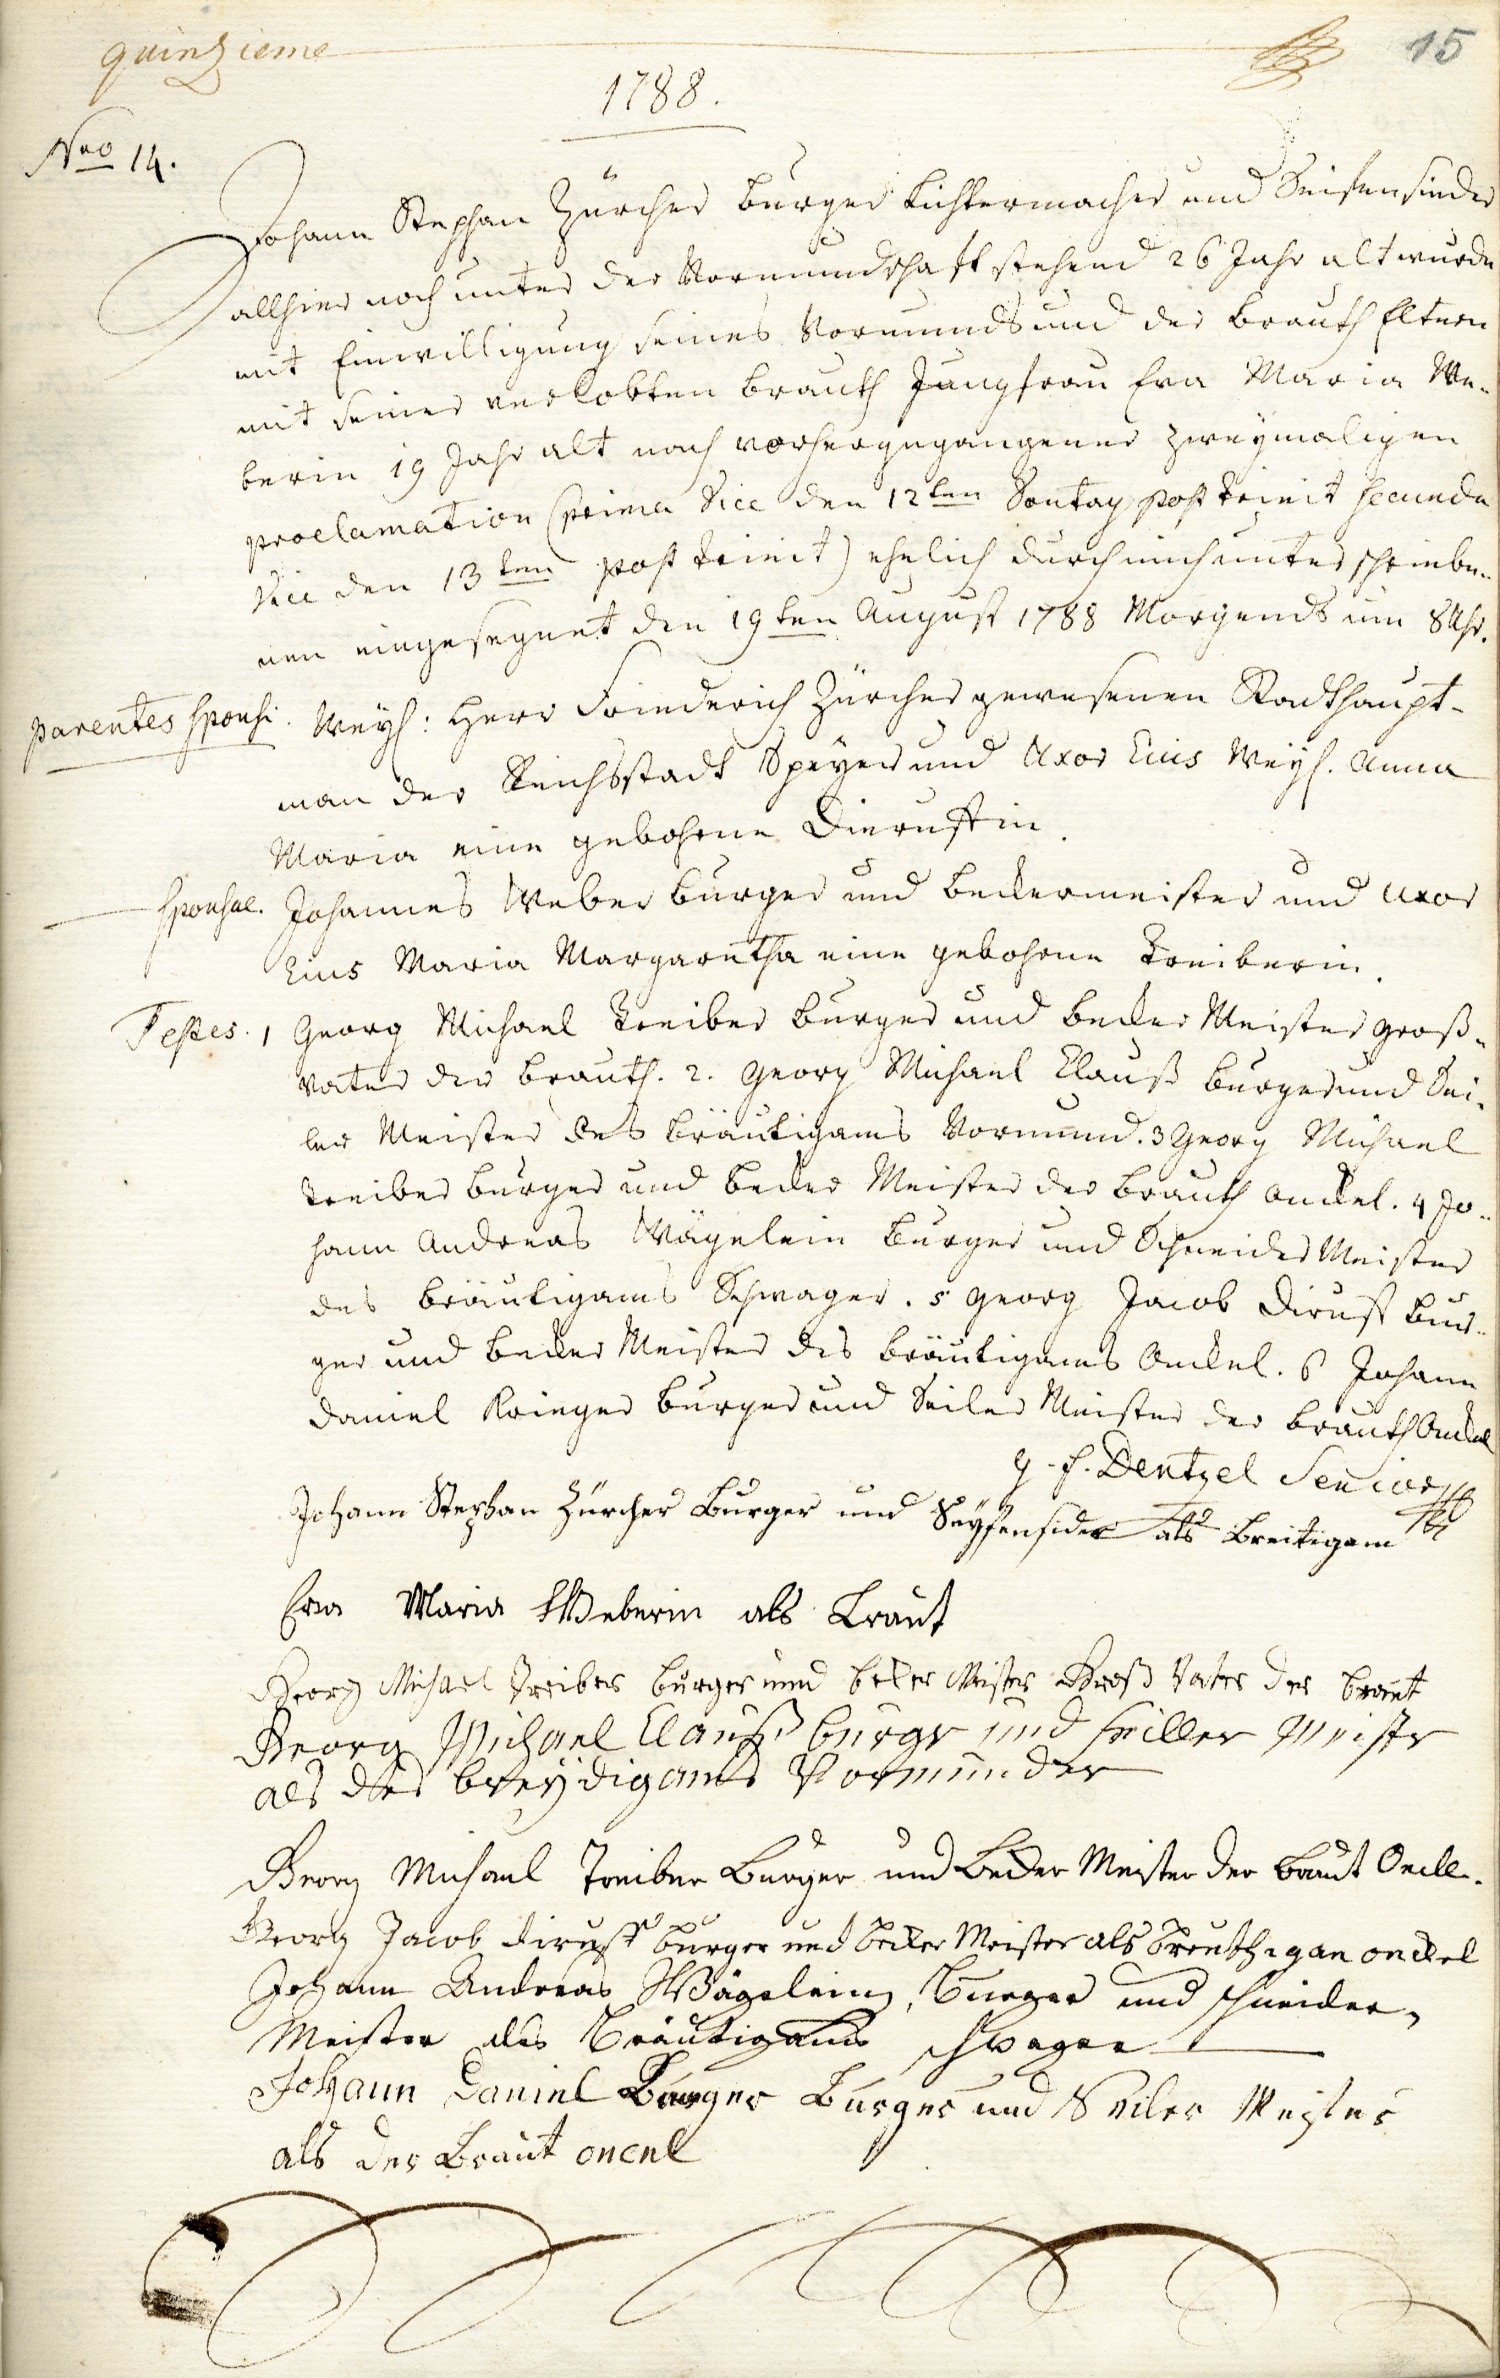 quinzieme
15
1788.
Nro 14.
Johann Stephan Zürcher burger Lichtermacher und Seifensieder
allhier noch unter der Vormundschaft stehend 26 Jahr alt wurde
mit Einwilligung seines Vormunds und der Brauth Eltern
mit seiner verlobten Brauth Jungfrau Eva Maria We-
berin 19 Jahr alt nach vorhergegangener zweymaligen
proclamation (prima Vice den 12ten Sontag post trinit secunda
Vice den 13ten post trinit) ehelich durch mich unterschriebe-
nen eingesegnet den 19ten August 1788 Morgends um 8 Uhr.
parentes sponsi. Weyl: Herr Friederich Zürcher gewesenen Stadthaupt-
man der Reichsstadt Speyer und Uxor Eius Weyl. Anna
Maria eine gebohrne Diernstin.
— sponsae. Johannes Weber burger und beckermeister und Uxor
Eius Maria Margaretha eine gebohrne Treiberin.
Testes. 1 Georg Michael Treiber burger und becker Meister groß-
vater der Brauth. 2. Georg Michael Clauß burger und Sei-
ler Meister des bräutigams Vormund. 3 Georg Michael
Treiber burger und becker Meister der Brauth onckel. 4 Jo-
hann Andreas Wägelein burger und Schneider Meister
des bräutigams Schwager. 5 Georg Jacob Dirnst bur-
ger und becker Meister des bräutigams Onckel. 6 Johann
Daniel Krieger burger und Seiler Meister der brauth Onckel
Dentzel Senior
Johann Stephan Zürcher Burger und Seyfensider als Breitigam
Eva Maria Weberin als Braut
Georg Michael Treiber burger und beker Mister Groß Vater der braut
Georg Michael Clauß burgr und seiller Meistr
als des breydigams Vormünder
Georg Michael Treiber Burger und Becker Meister der Braut Onckl.
Georg Jacob dirnst burger und becker Meister als breuthigan onckel
Johann Andreas Wägelein, Burger und schneider,
Meister des Bräutigams schwager
Johann Daniel Burger und Seiler Meister
als der Braut oncel